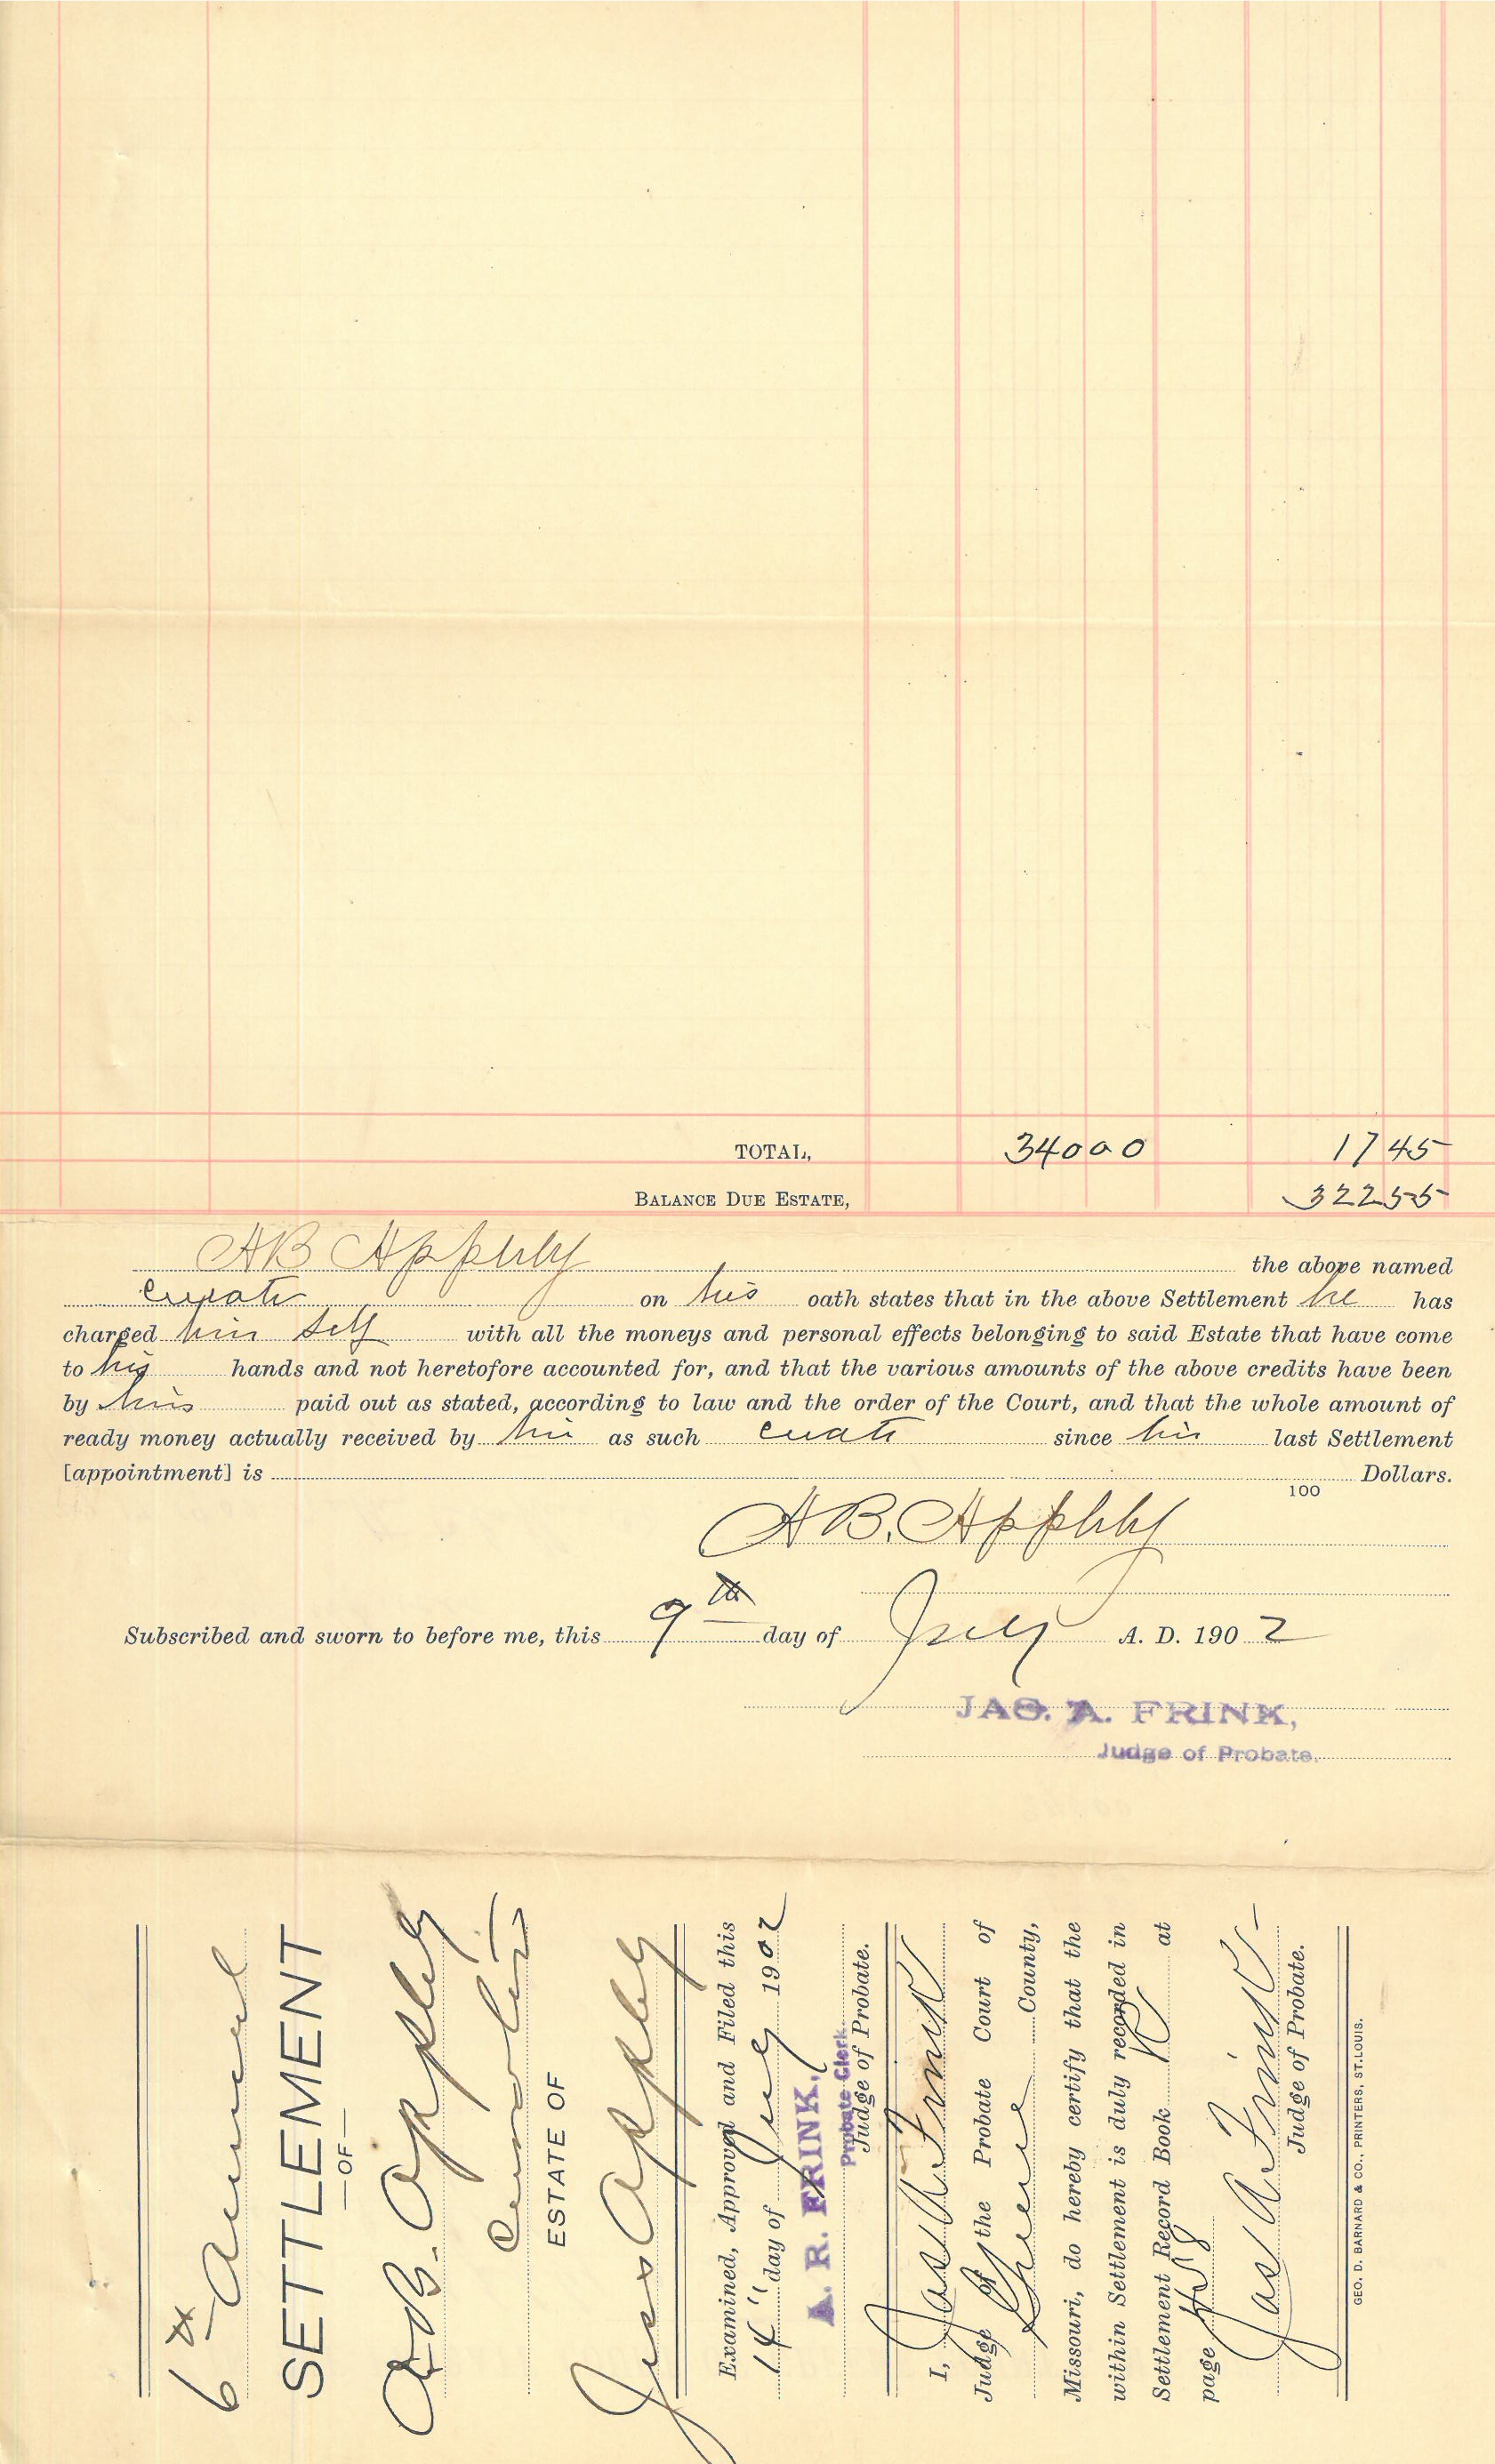 TOTAL, 340 00 17 45
BALANCE DUE ESTATE, 322 55
A B Appleby the above named
Curator on his oath states that in the above Settlement he has
charged him self with all the moneys and personal effects belonging to said Estate that have come
to his hands and not heretofore accounted for, and that the various amounts of the above credits have been
by him paid out as stated, according to law and the order of the Court, and that the whole amount of
ready money actually received by him as such Curator since his last Settlement
[appointment] is 100 Dollars.
A B. Appleby
Subscribed and sworn to before me, this 9th day of July A. D. 1902
JAS. A. FRINK,
Judge of Probate.
6th Annual
SETTLEMENT
—OF—
A.B. Appleby
Curator
ESTATE OF
Appleby
Examined, Approved and Filed this
14" day of July 1902
A. R. FRINK,
Probate Clerk.
Judge of Probate.
I, Jas A Frink
Judge of the Probate Court of
Greene County,
Missouri, do hereby certify that the
within Settlement is duly recorded in
Settlement Record Book at
page
Jas A. Frink
Judge of Probate.
GEO. D. BARNARD & CO., PRINTERS, ST. LOUIS.